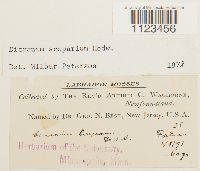 1123456
Dicranum scoparium Hedw.
Det. Wilbur Peterson 1978
LABRADOR MOSSES
Collected by THE REV'D ARTHUR C. WAGHORNE,
Newfoundland.
Named by DR. GEO. N. BEST, New Jersey, U.S.A.
Herbarium of the University,
Minneapolis, Minn.